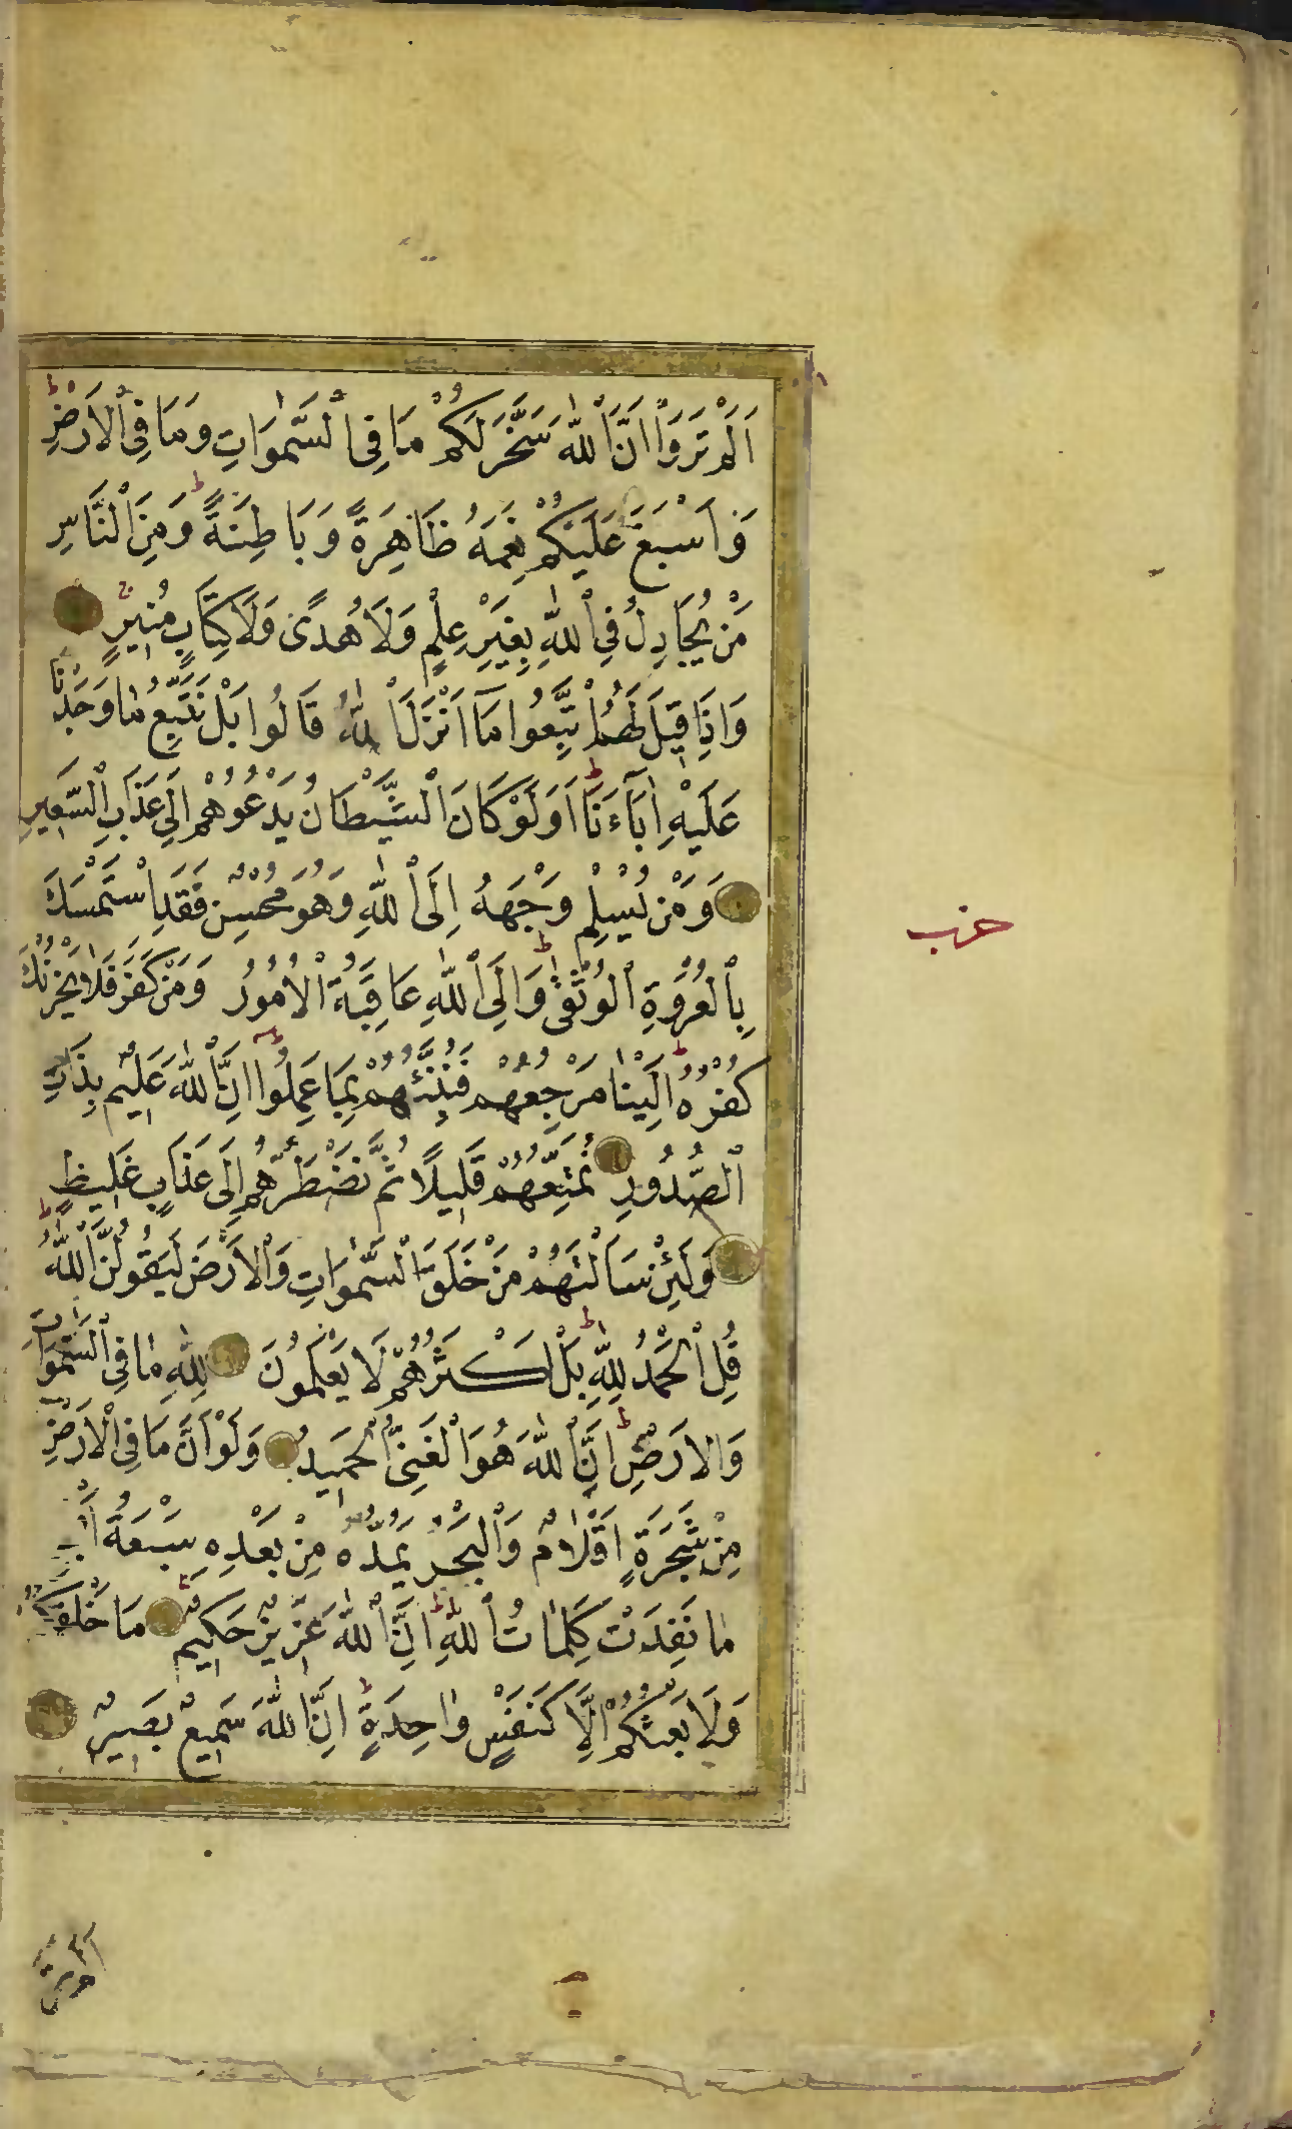 اَلَمْ تَرَوْا اَنَّ اللّٰهَ سَخَّرَ لَكُمْ مَا فِى السَّمٰوَاتِ وَمَا فِى الْاَرْضِ
وَاَسْبَغَ عَلَيْكُمْ نِعَمَهُ ظَاهِرَةً وَبَاطِنَةً وَمِنَ النَّاسِ
مَنْ يُجَادِلُ فِى اللّٰهِ بِغَيْرِ عِلْمٍ وَلَا هُدًى وَلَا كِتَابٍ مُنِيرٍ
وَاِذَا قِيلَ لَهُمُ اتَّبِعُوا مَآ اَنْزَلَ اللّٰهُ قَالُوا بَلْ نَتَّبِعُ مَا وَجَدْنَا
عَلَيْهِ اٰبَآءَنَا اَوَلَوْ كَانَ الشَّيْطَانُ يَدْعُوهُمْ اِلَى عَذَابِ السَّعِيرِ
وَمَنْ يُسْلِمْ وَجْهَهُ اِلَى اللّٰهِ وَهُوَ مُحْسِنٌ فَقَدِ اسْتَمْسَكَ
بِالْعُرْوَةِ الْوُثْقٰى وَاِلَى اللّٰهِ عَاقِبَةُ الْاُمُورُ وَمَنْ كَفَرَ فَلَا يَحْزُنْكَ
كُفْرُهُ اِلَيْنَا مَرْجِعُهُمْ فَنُنَبِّئُهُمْ بِمَا عَمِلُوا اِنَّ اللّٰهَ عَلِيمٌ بِذَاتِ
الصُّدُورِ نُمَتِّعُهُمْ قَلِيلًا ثُمَّ نَضْطَرُّهُمْ اِلَى عَذَابٍ غَلِيظٍ
وَلَئِنْ سَاَلْتَهُمْ مَنْ خَلَقَ السَّمٰوَاتِ وَالْاَرْضَ لَيَقُولُنَّ اللّٰهُ
قُلِ الْحَمْدُ لِلّٰهِ بَلْ اَكْثَرُهُمْ لَا يَعْلَمُونَ لِلّٰهِ مَا فِى السَّمٰوَاتِ
وَالْاَرْضِ اِنَّ اللّٰهَ هُوَ الْغَنِىُّ الْحَمِيدُ وَلَوْ اَنَّ مَا فِى الْاَرْضِ
مِنْ شَجَرَةٍ اَقْلَامٌ وَالْبَحْرُ يَمُدُّهُ مِنْ بَعْدِهِ سَبْعَةُ
مَا نَفِدَتْ كَلِمَاتُ اللّٰهِ اِنَّ اللّٰهَ عَزِيزٌ حَكِيمٌ مَا خَلْقُكُمْ
وَلَا بَعْثُكُمْ اِلَّا كَنَفْسٍ وَاحِدَةٍ اِنَّ اللّٰهَ سَمِيعٌ بَصِيرٌ
حزب